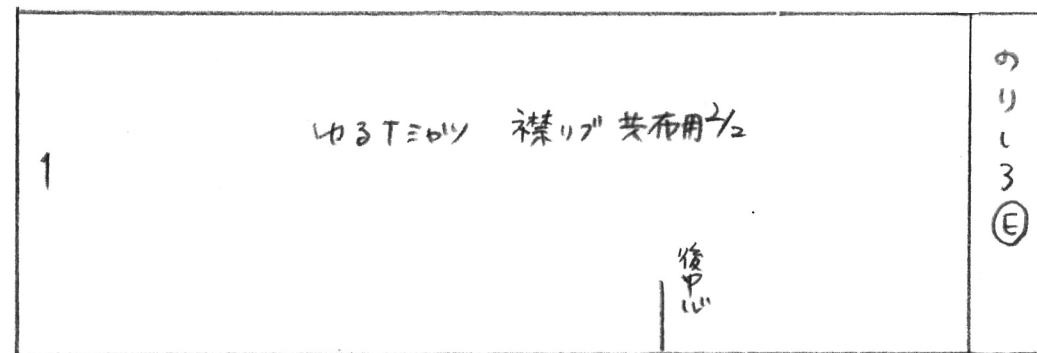 ゆるTミシャツ 襟リブ 共布用2/2
1
後中心
のりしろⒺ